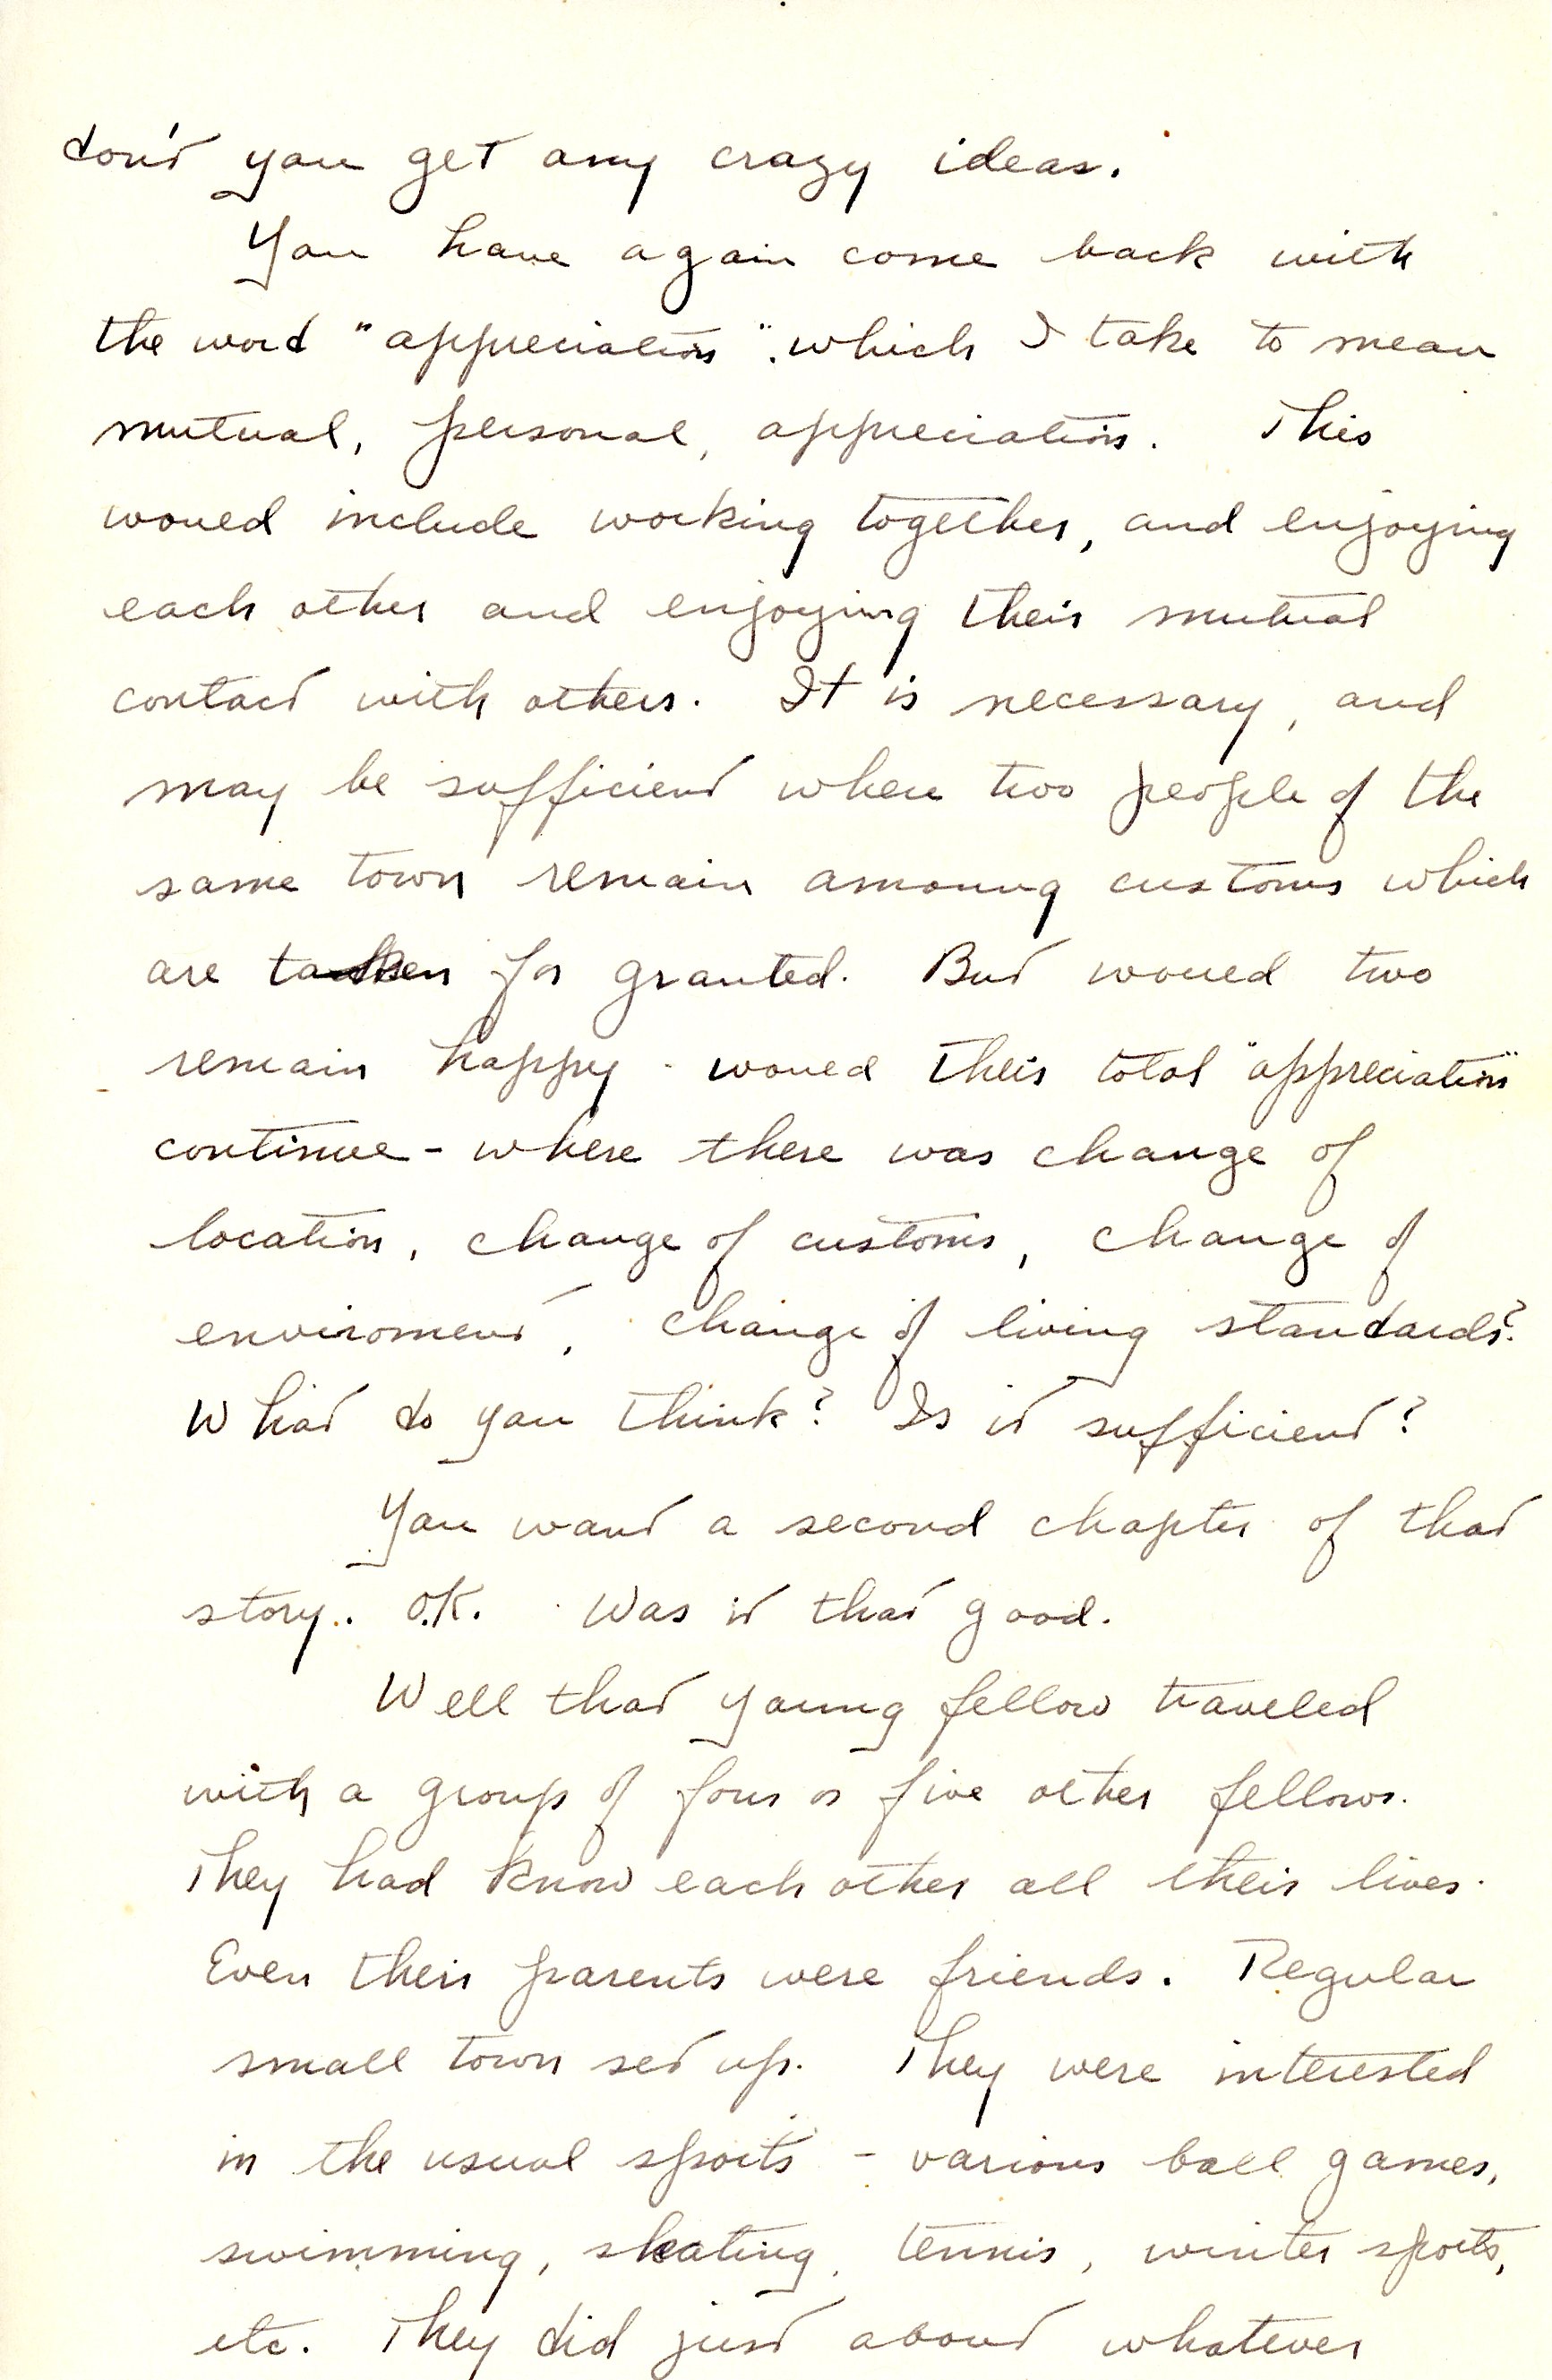 don't you get any crazy ideas.
You have again come back with
the word "appreciation". which I take to mean
mutual, personal, appreciation. This
would include working together, and enjoying
each other and enjoying their mutual
contact with others. It is necessary, and
may be sufficient when two people of the
same town remain amoung customs which
are taken for granted. But would two
remain happy - would their total "appreciation"
continue - where there was change of
location, change of customs, change of
enviroment, change of living standards?
What do you think? Is it sufficient?
You want a second chapter of that
story.. O.K. Was it that good.
Well that young fellow traveled
with a group of four or five other fellows.
They had know each other all their lives.
Even their parents were friends. Regular
small town set up. They were interested
in the usual sports - various ball games,
swimming, skating, tennis, winter sports,
etc. They did just about whatever